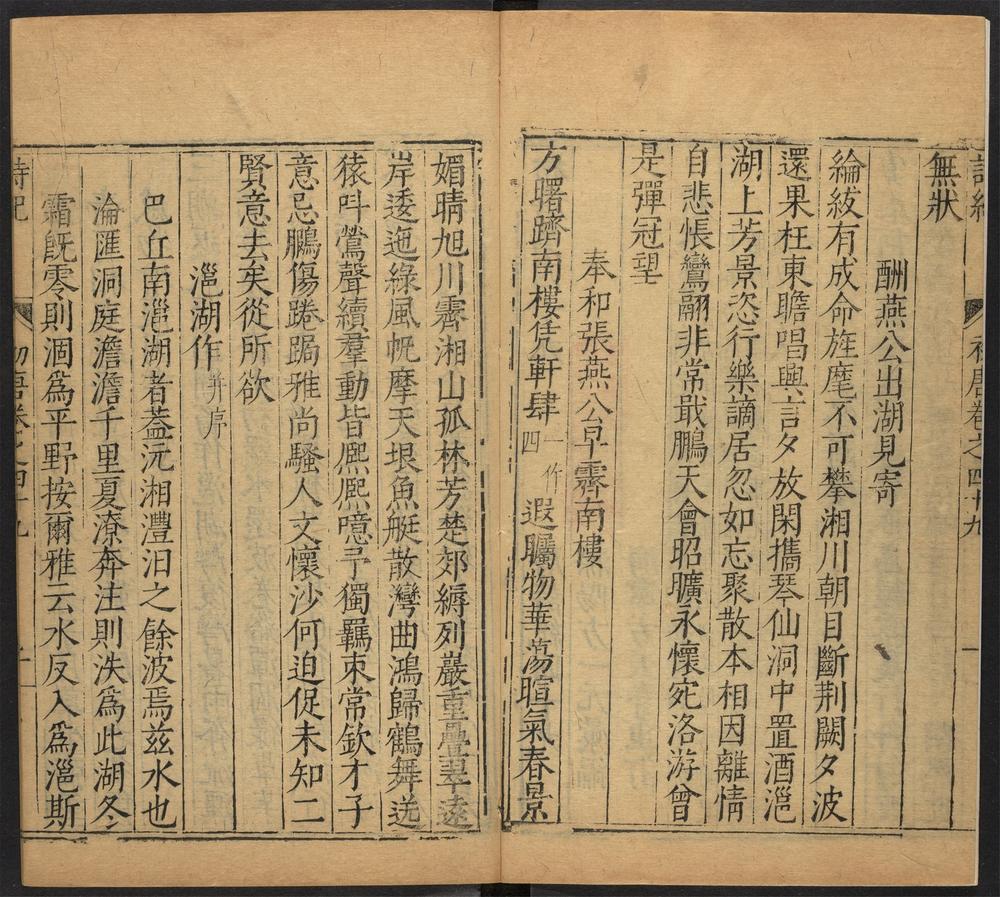 無狀
酬燕公出湖見寄
綸紱有成命旌麾不可攀湘川朝目斷荆闕夕波
還果枉東瞻唱興言夕放閑攜琴仙洞中置酒㴩
湖上芳景恣行樂謫居忽如忘聚散本相因離情
自悲悵鸞翮非常戢鵬天會昭曠永懷宛洛游曾
是彈冠望
奉和張燕公早霽南樓
方曙躋南樓凭軒肆一作四遐矚物華蕩暄氣春景
媚晴旭川霽湘山孤林芳楚郊縟列巖重疊翠遠
岸逶迤綠風帆摩天垠魚艇散灣曲鴻歸鶴舞送
猿呌鶯聲續羣動皆熈熈噫予獨羈束常欽才子
意忌鵬傷踡跼雅尚騷人文懷沙何迫促未知二
賢意去矣從所欲
㴩湖作并序
巴丘南㴩湖者葢沅湘灃汨之餘波焉兹水也
淪匯洞庭澹澹千里夏潦奔注則泆爲此湖冬
霜旣零則涸爲平野按爾雅云水反入爲㴩斯